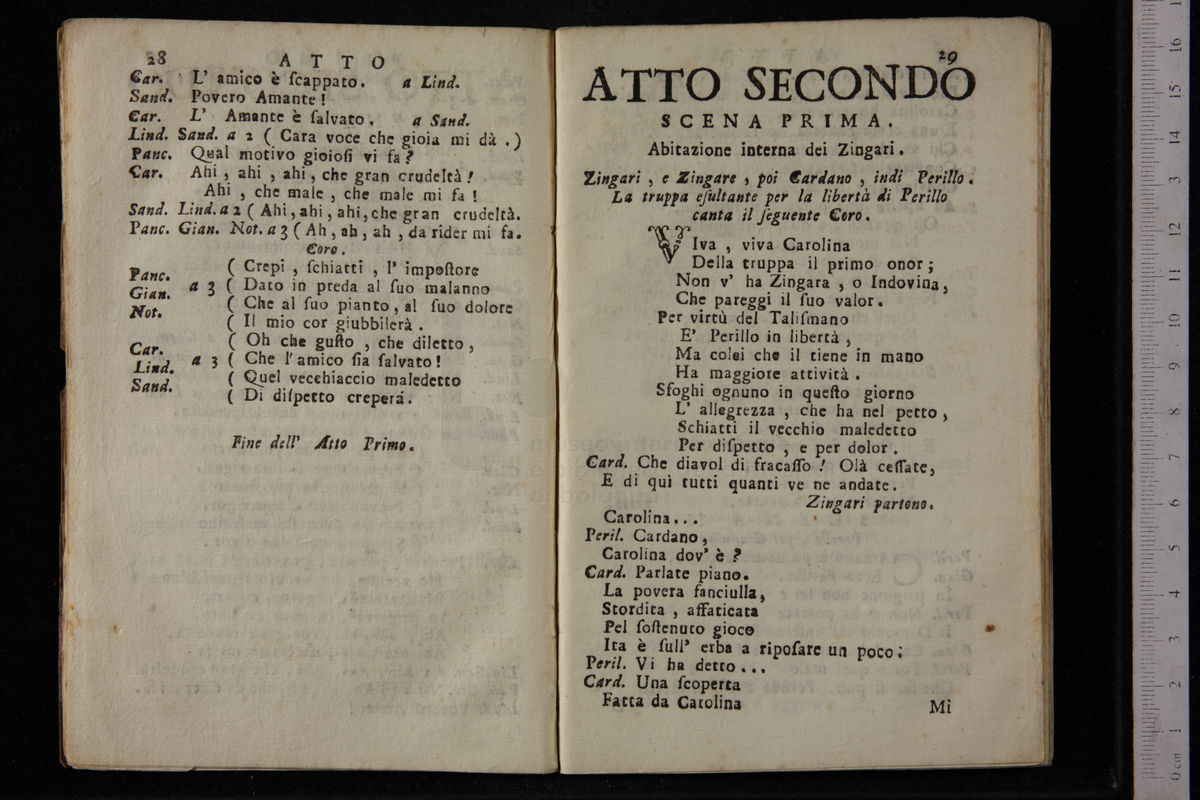 28 ATTO
Car. L' amico è ſcappato. a Lind.
Sand. Povero Amante!
Car. L' Amante è ſalvato. a Sand.
Lind. Sand. a 2 ( Cara voce che gioia mi dà. )
Panc. Qual motivo gioioſi vi fa?
Car. Ahi, ahi, ahi, che gran crudeltà!
Ahi, che male, che male mi fa!
Sand. Lind. a 2 ( Ahi, ahi, ahi, che gran crudeltà.
Panc. Gian. Not. a 3 ( Ah, ah, ah, da rider mi fa.
Coro.
Panc. ( Crepi, ſchiatti, l' impoſtore
Gian. a 3 ( Dato in preda al ſuo malanno
Not. ( Che al ſuo pianto, al ſuo dolore
( Il mio cor giubbilerà.
Car. ( Oh che guſto, che diletto,
Lind. a 3 ( Che l' amico ſia ſalvato!
Sand. ( Quel vecchiaccio maledetto
( Di diſpetto creperà.
Fine dell' Atto Primo.
29
ATTO SECONDO
SCENA PRIMA.
Abitazione interna dei Zingari.
Zingari, e Zingare, poi Cardano, indi Perillo.
La truppa eſultante per la libertà di Perillo
canta il ſeguente Coro.
VIva, viva Carolina
Della truppa il primo onor;
Non v' ha Zingara, o Indovina,
Che pareggi il ſuo valor.
Per virtù del Taliſmano
E' Perillo in libertà,
Ma colei che il tiene in mano
Ha maggiore attività.
Sfoghi ognuno in queſto giorno
L' allegrezza, che ha nel petto,
Schiatti il vecchio maledetto
Per diſpetto, e per dolor.
Card. Che diavol di fracaſſo! Olà ceſſate,
E di quì tutti quanti ve ne andate.
Zingari partono.
Carolina...
Peril. Cardano,
Carolina dov' è?
Card. Parlate piano.
La povera fanciulla,
Stordita, affaticata
Pel ſoſtenuto gioco
Ita è ſull' erba a ripoſare un poco;
Peril. Vi ha detto...
Card. Una ſcoperta
Fatta da Carolina
Mi